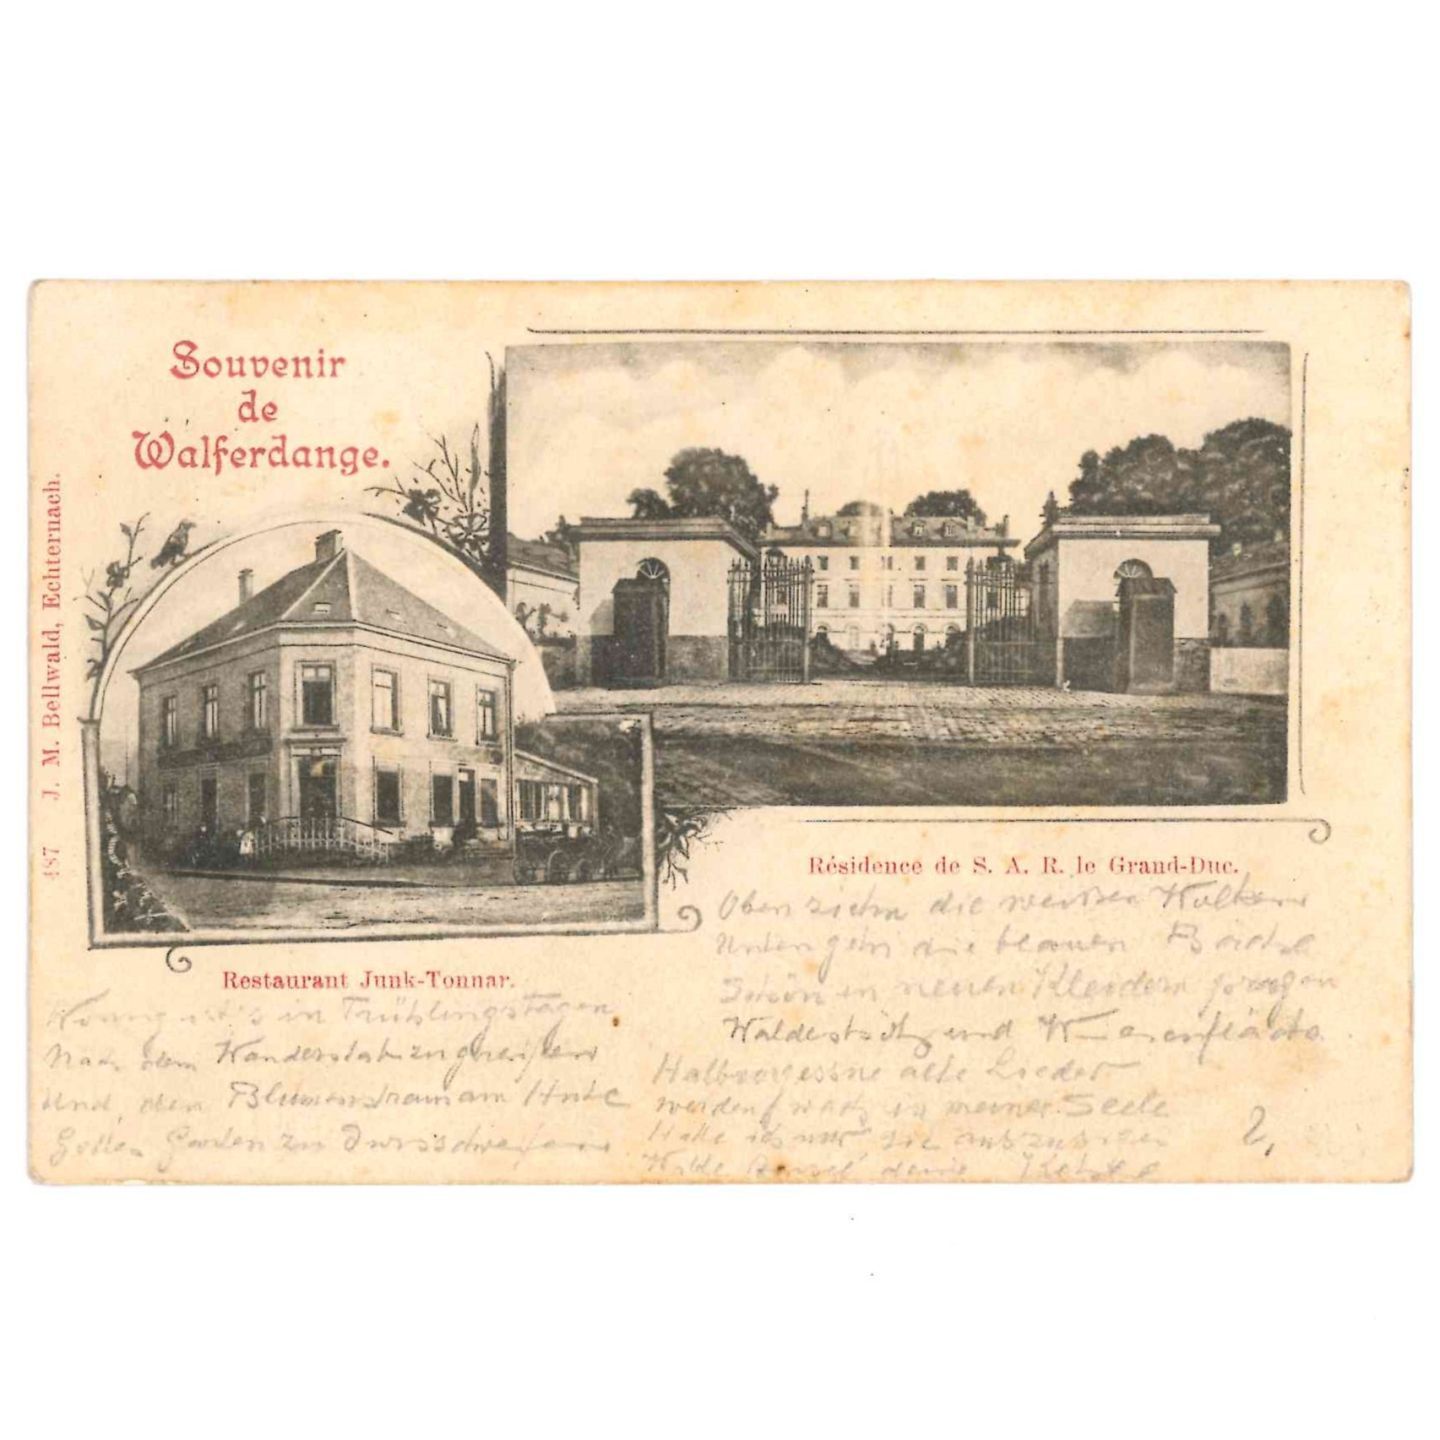 Souvenir
de
Walferdange.
487 J. M. Bellwald, Echternach.
Résidence de S. A. R. le Grand-Duc.
Restaurant Junk-Tonnar.
Wonnig ist's in Frühlingstagen
Nach dem Wanderstab zu greifen
Und, den Blumenstrauss am Hute
Gottes Garten zu durchschweifen
Oben ziehn die weissen Wolken
Unten gehn die blauen Bäche
Schön in neuen Kleidern prangen
Waldes und Wiesenfläche.
Halbvergessne alte Lieder
werden wach in meiner Seele
Hätte ich nur sie auszusingen
Wilde deine Kehle
2,